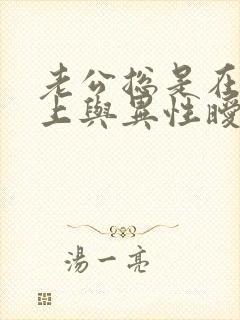 老公总是在
上與異性曖
湯一亮